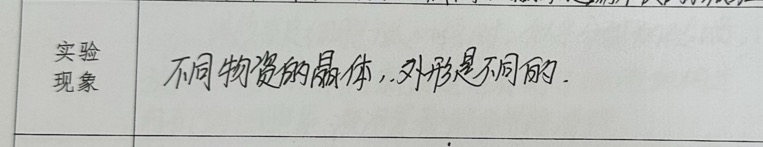 实验
现象
不同物资的晶体，外形是不同的.